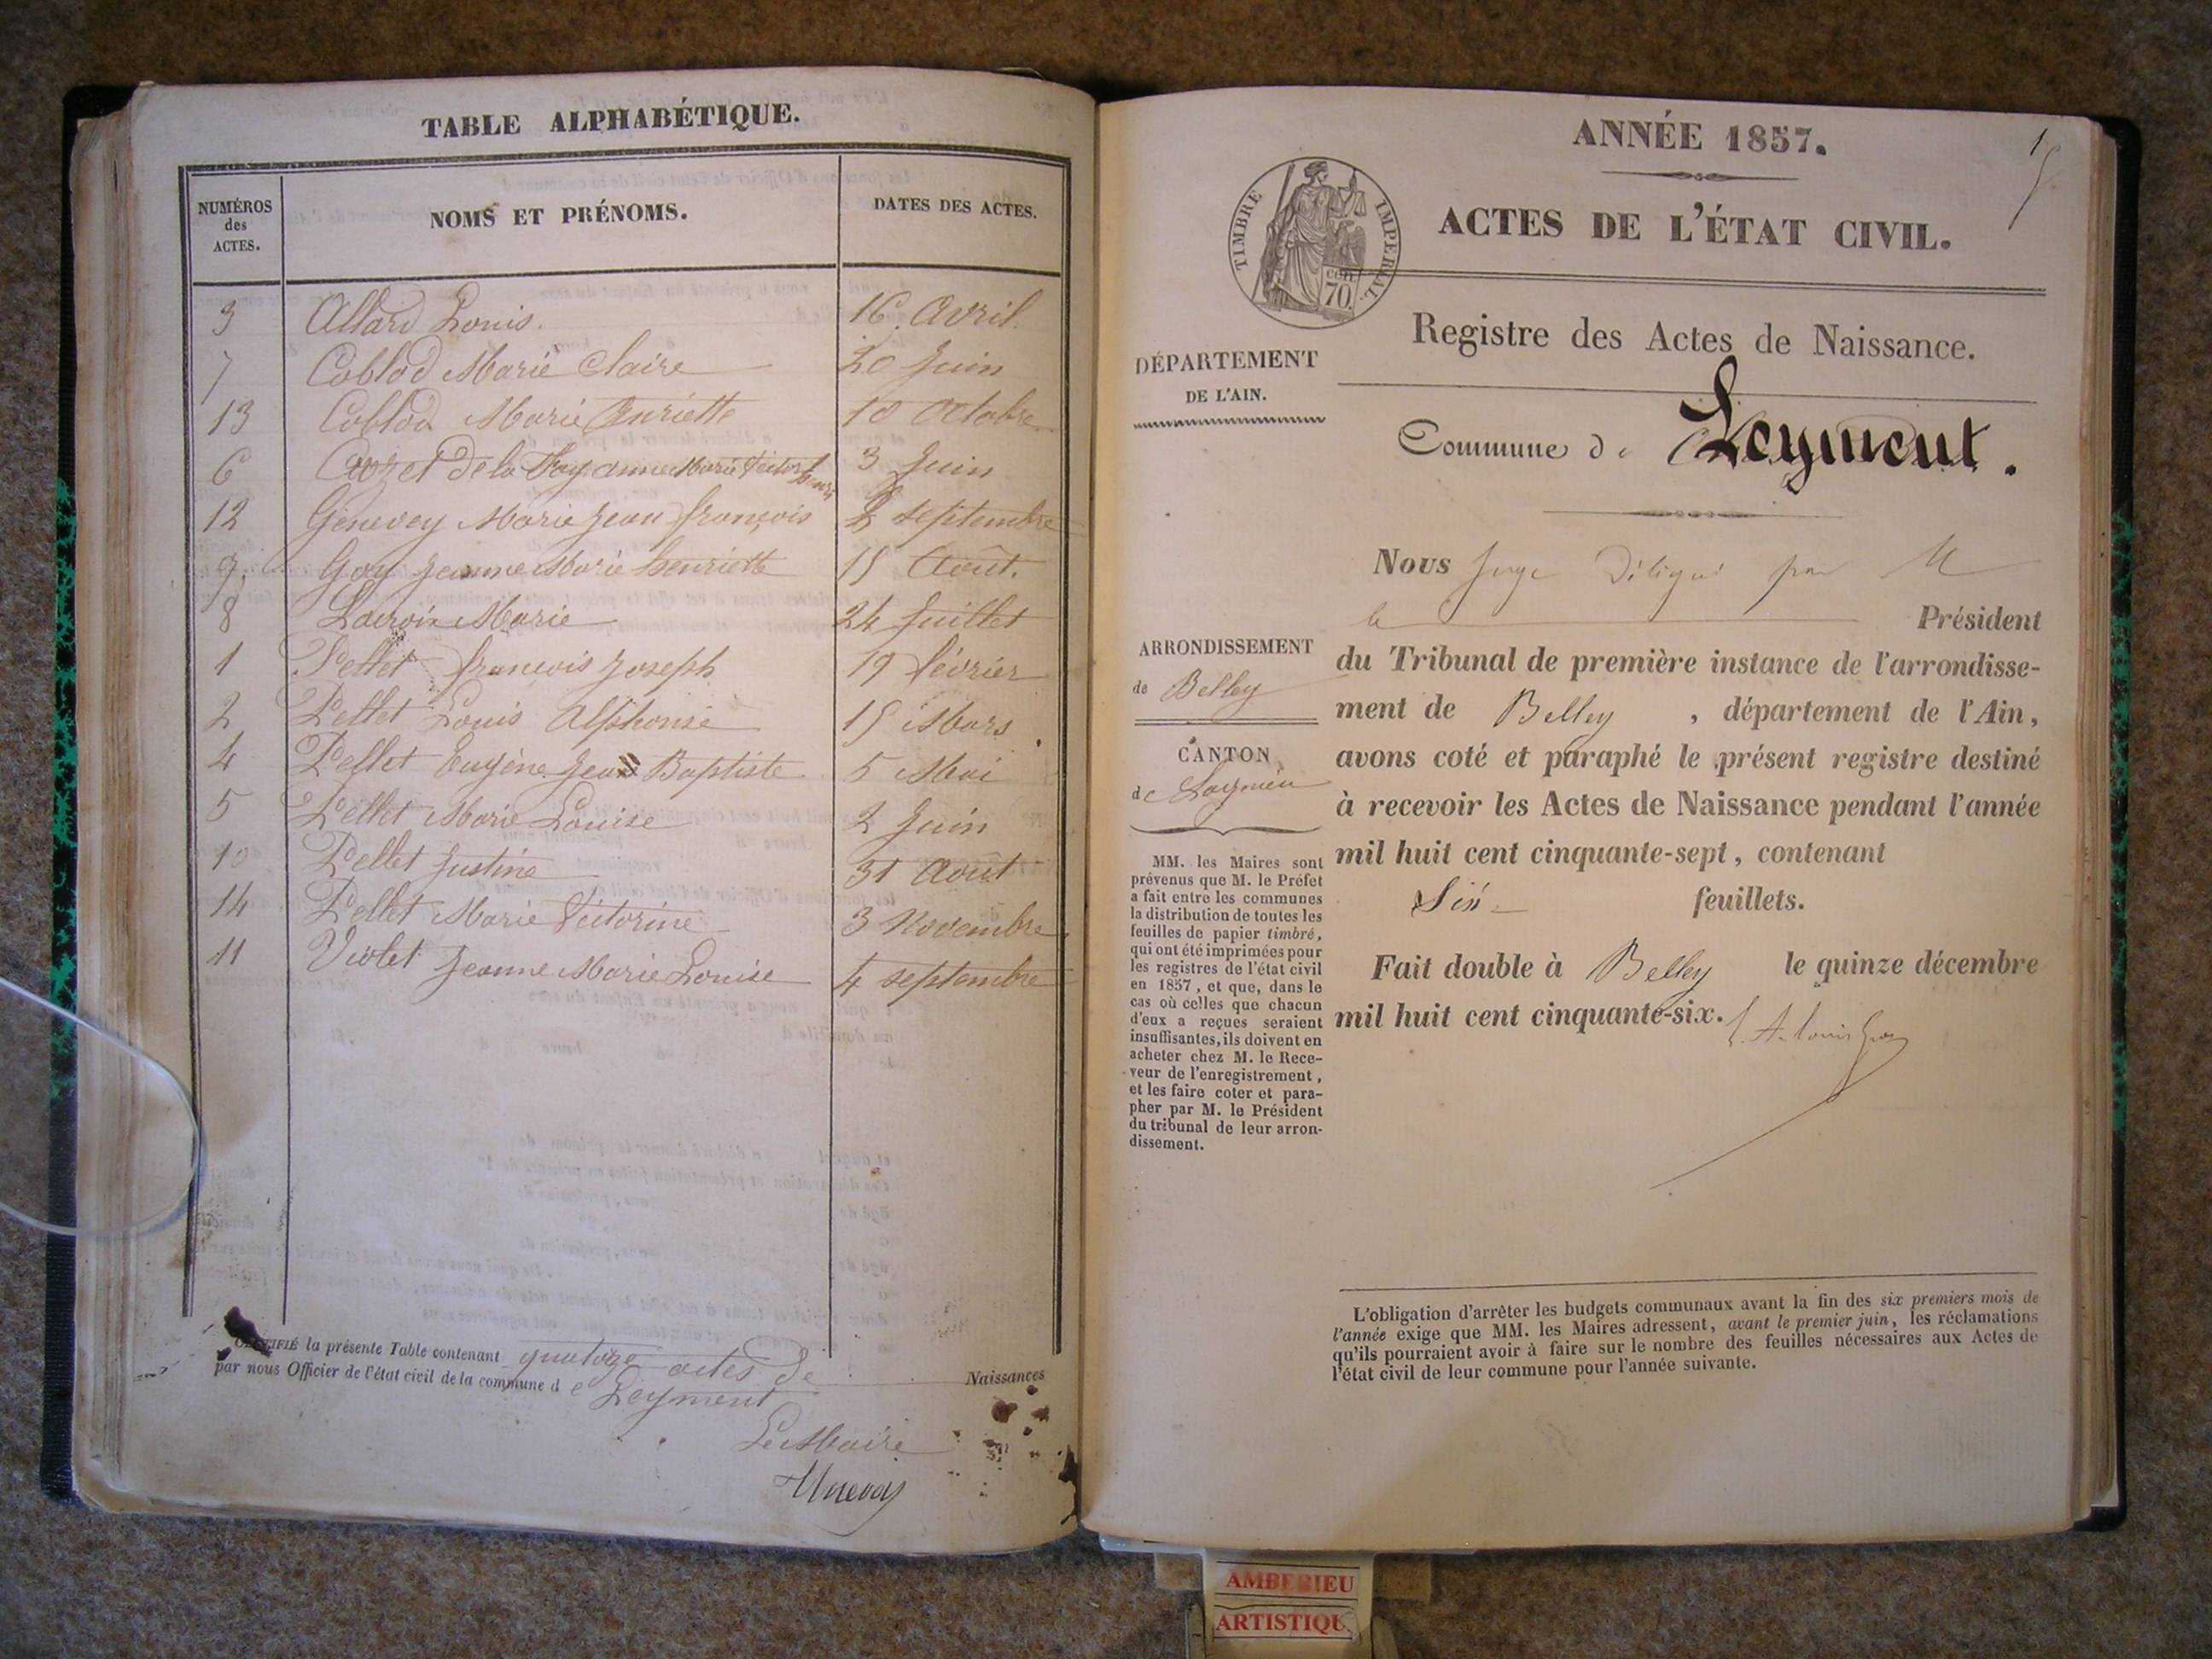 TABLE ALPHABÉTIQUE.
NUMÉROS des ACTES. NOMS ET PRÉNOMS. DATES DES ACTES.
3 Allard Louis. 16 Avril
7 Coblod Marie Claire 20 Juin
13 Coblod Marie Anriette 10 Octobre
6 de la anne Marie 3 Juin
12 Genevey Marie Jean françois 2 septembre
9 Goy Jeanne Marie henriette 15 Août.
8 Lacroix Marie 24 Juillet
1 Pellet françois Joseph 19 février
2 Pellet Louis Alphonse 15 Mars
4 Pellet Eugène Jean Baptiste 5 Mai
5 Pellet Marie Louise 2 Juin
10 Pellet Justine 31 Août
14 Pellet Marie Victorine 3 Novembre
11 Violet Jeanne Marie Louise 4 septembre
CERTIFIÉ la présente Table contenant quatorze actes de Naissances
par nous Officier de l'état civil de la commune d e Leyment
Le Maire
ANNÉE 1857.
1
TIMBRE IMPÉRIAL.
70
ACTES DE L'ÉTAT CIVIL.
Registre des Actes de Naissance.
DÉPARTEMENT
DE L'AIN.
Commune de Leyment.
Nous Juge Délégué par M
le Président
du Tribunal de première instance de l'arrondisse-
ment de Belley , département de l'Ain,
avons coté et paraphé le présent registre destiné
à recevoir les Actes de Naissance pendant l'année
mil huit cent cinquante-sept, contenant
Six feuillets.
Fait double à Belley le quinze décembre
mil huit cent cinquante-six.
ARRONDISSEMENT
de Belley
CANTON
de Lagnieu
MM. les Maires sont
prévenus que M. le Préfet
a fait entre les communes
la distribution de toutes les
feuilles de papier timbré,
qui ont été imprimées pour
les registres de l'état civil
en 1857, et que, dans le
cas où celles que chacun
d'eux a reçues seraient
insuffisantes, ils doivent en
acheter chez M. le Rece-
veur de l'enregistrement,
et les faire coter et para-
pher par M. le Président
du tribunal de leur arron-
dissement.
L'obligation d'arrêter les budgets communaux avant la fin des six premiers mois de
l'année exige que MM. les Maires adressent, avant le premier juin, les réclamations
qu'ils pourraient avoir à faire sur le nombre des feuilles nécessaires aux Actes de
l'état civil de leur commune pour l'année suivante.
AMBERIEU
ARTISTIQU